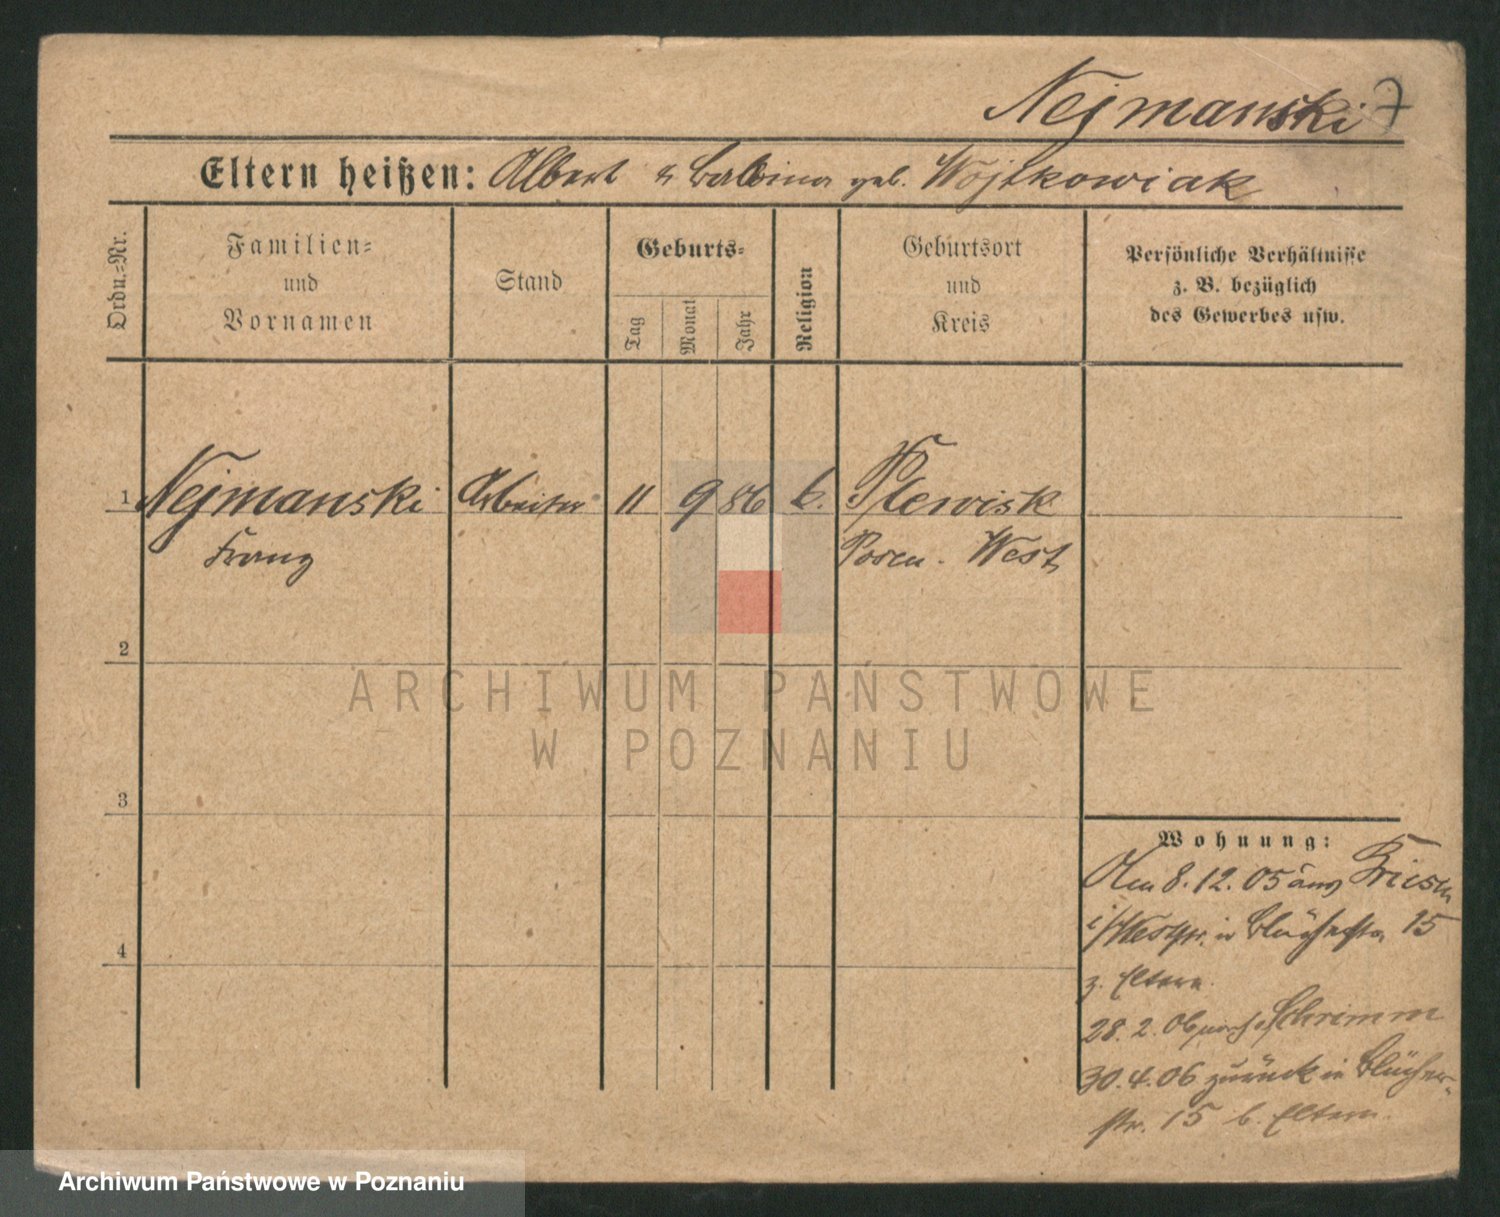 Nejmanski 7
Eltern heißen: Albert & Balbina geb. Wojtkowiak
Ordn.-Nr.
Familien-
und
Vornamen
Stand
Geburts-
Tag
Monat
Jahr
Religion
Geburtsort
und
Kreis
Persönliche Verhältnisse
z. B. bezüglich
des Gewerbes usw.
1 Nejmanski Arbeiter 11 9 86 k. Plewisk
Franz Posen - West
2
ARCHIWUM PAŃSTWOWE
W POZNANIU
3
Wohnung:
Am 8. 12. 05 Briesen
i/Westpr. in Blücherstr. 15
4
z. Eltern.
28. 2. 06 nach Schrimm
30. 4. 06 zurück in Blücher-
str. 15 b. Eltern.
Archiwum Państwowe w Poznaniu